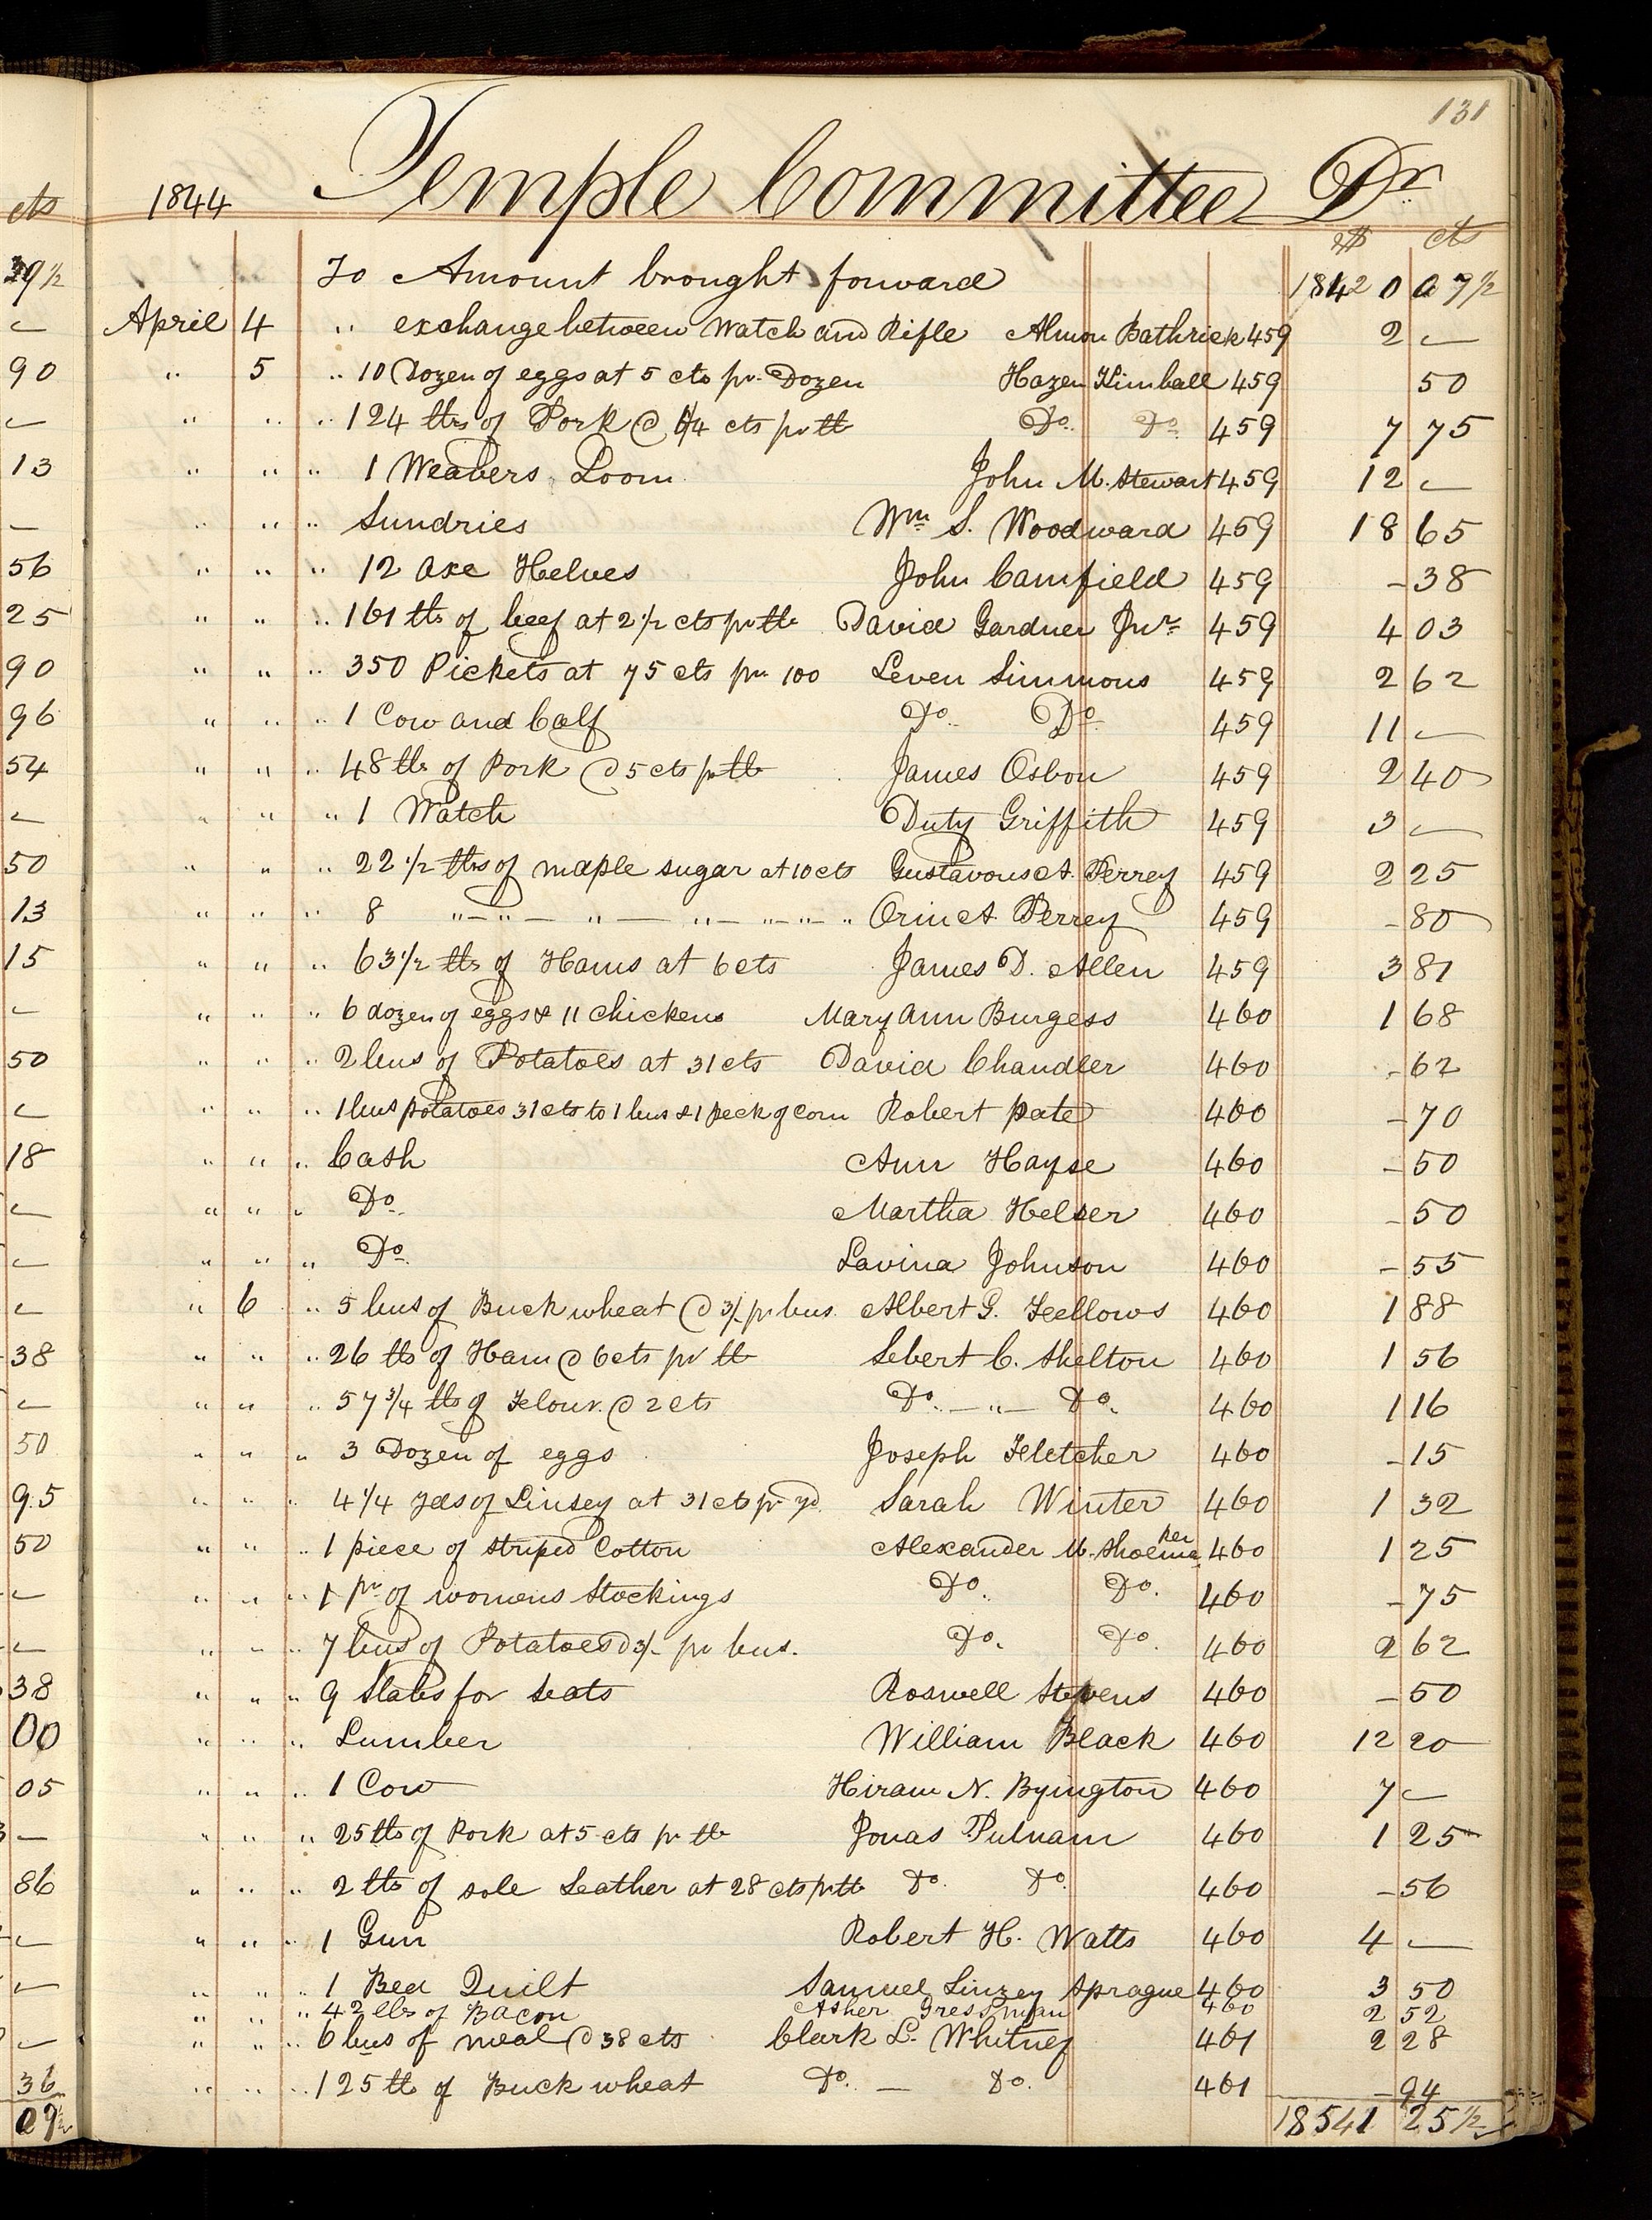 131
1844 Temple Committee Dr
$ cts
To Amount brought forward 18420 07½
April 4 " exchange between Watch and Rifle Almon Bathrick 459 2 —
" 5 " 10 Dozen of eggs at 5 cts pr. Dozen Hazen Kimball 459 50
" " " 124 lbs of Pork @ 6¼ cts pr lb Do. Do. 459 7 75
" " " 1 Weavers Loom John M. Stewart 459 12 —
" " " Sundries Wm S. Woodward 459 18 65
" " " 12 axe Helves John Camfield 459 - 38
" " " 161 lbs of beef at 2½ cts pr lb David Gardner Jnr 459 4 03
" " " 350 Pickets at 75 cts pr 100 Leven Simmons 459 2 62
" " " 1 Cow and Calf Do. Do. 459 11 —
" " " 48 lbs of Pork @ 5 cts pr lb James Osbon 459 2 40
" " " 1 Watch Duty Griffith 459 3 —
" " " 22½ lbs of maple sugar at 10 cts Gustavous A. Perrey 459 2 25
" " " 8 " — " — " — " — " — " Orin A. Perrey 459 - 80
" " " 63½ lbs of Hams at 6 cts James D. Allen 459 3 81
" " " 6 dozen of eggs & 11 chickens Mary Ann Burgess 460 1 68
" " " 2 bus of Potatoes at 31 cts David Chandler 460 - 62
" " " 1 bus potatoes 31 cts to 1 bus & 1 peck of corn Robert pate 460 - 70
" " " Cash Ann Hayse 460 - 50
" " " Do. Martha Helser 460 - 50
" " " Do. Lavina Johnson 460 - 55
" 6 " 5 bus of Buckwheat @ 3/- pr bus. Albert G. Fellows 460 1 88
" " " 26 lbs of Ham @ 6 cts pr lb Sebert C. Shelton 460 1 56
" " " 57¾ lbs of Flour. @ 2 cts Do. — " — Do. 460 1 16
" " " 3 Dozen of eggs Joseph Fletcher 460 - 15
" " " 4¼ yds of Linsey at 31 cts pr yd. Sarah Winter 460 1 32
" " " 1 piece of striped Cotton Alexander M. Shoemaker 460 1 25
" " " 1 pr of womens Stockings Do. Do. 460 - 75
" " " 7 bus of Potatoes @ 3/- pr bus. Do. Do. 460 2 62
" " " 9 Slabs for seats Roswell Stevens 460 - 50
" " " Lumber William Black 460 12 20
" " " 1 Cow Hiram N. Byington 460 7 —
" " " 25 lbs of Pork at 5 cts pr lb Jonas Putnam 460 1 25
" " " 2 lbs of sole Leather at 28 cts pr lb Do. Do. 460 - 56
" " " 1 Gun Robert H. Watts 460 4 —
" " " 1 Bed Quilt Samuel Linzey Sprague 460 3 50
" " " 42 lbs of Bacon Asher 460 2 52
" " " 6 bus of meal @ 38 cts Clark L. Whitney 461 2 28
" " " 125 lbs of Buckwheat Do. — Do. 461 - 94
18541 25½
cts
39½
—
90
—
13
—
56
25
90
96
54
—
50
13
15
—
50
—
18
—
—
—
38
—
50
95
50
—
—
38
00
05
—
86
—
—
—
36
09½